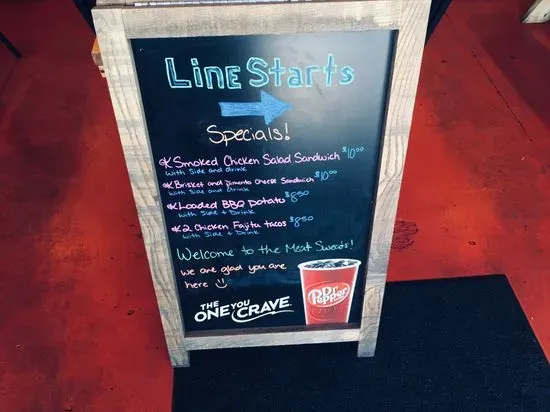 Line Starts
Specials!
Smoked Chicken Salad Sandwich $10.00
with Side and drink
Brisket and Pimento Cheese Sandwich $10.00
with Side and drink
Loaded BBQ Potato $8.50
with Side + Drink
2 Chicken Fajita tacos $8.50
with Side + Drink
Welcome to the Meat Sweats!
We are glad you are
here
THE
ONE YOU
CRAVE.
Dr
Pepper